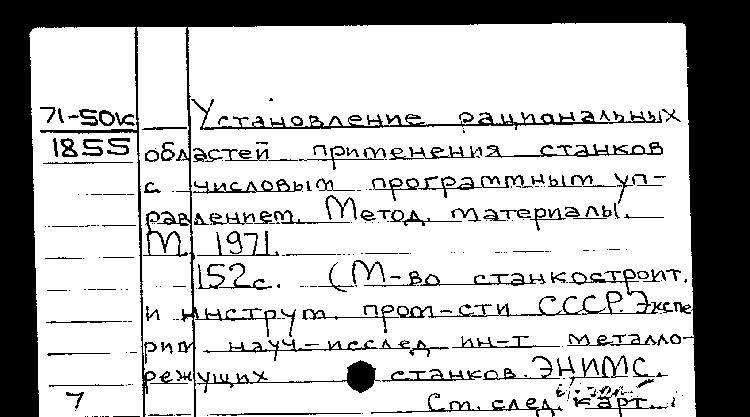 71-50к Установление рациональных
1855 областей применения станков
с числовым программным уп-
равлением. Метод. материалы.
М. 1971.
152с. (М-во станкостроит.
и инструм. пром-сти СССР. Экспе
рим. науч-исслед ин-т металло-
режущих станков. ЭНИМС.
7 См. след. карт.